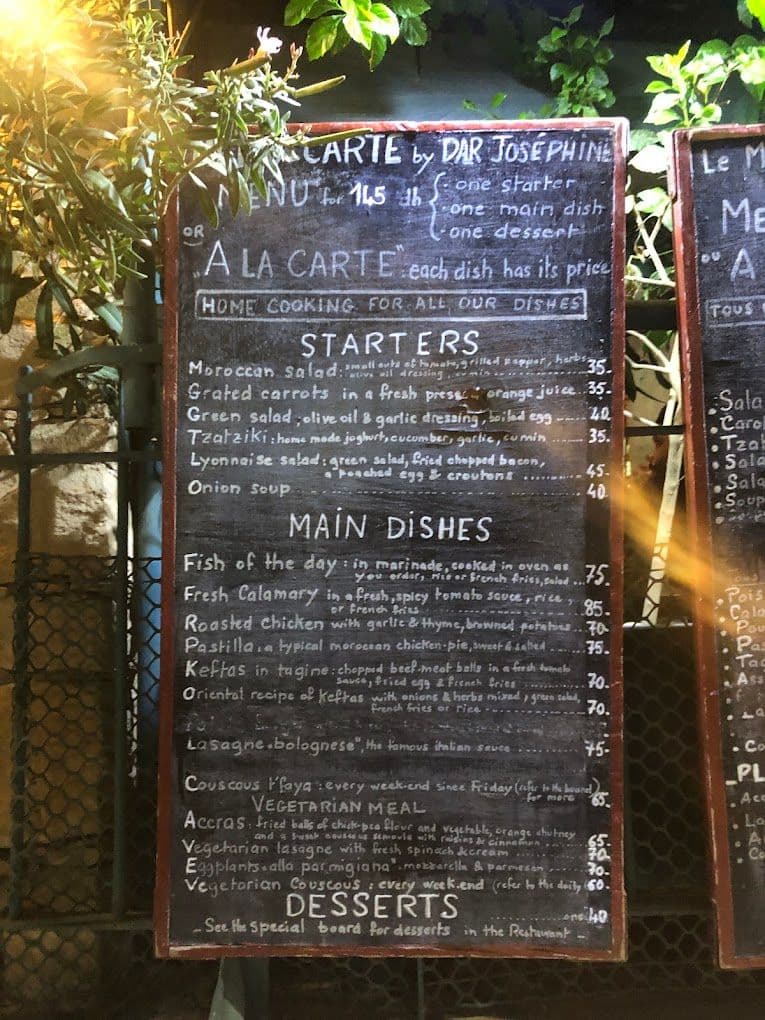 CARTE by DAR JOSÉPHINE
MENU for 145 dh { - one starter
- one main dish
- one dessert
OR
"A LA CARTE": each dish has its price
HOME COOKING FOR ALL OUR DISHES
STARTERS
Moroccan salad: small cuts of tomato, grilled pepper, herbs
olive oil dressing, cumin 35.
Grated carrots in a fresh pressed orange juice 35.
Green salad, olive oil & garlic dressing, boiled egg 40
Tzatziki: home made joghurt, cucumber, garlic, cumin 35.
Lyonnaise salad: green salad, fried chopped bacon,
a poached egg & croutons 45
Onion soup 40
MAIN DISHES
Fish of the day: in marinade, cooked in oven as
you order, rice or french fries, salad 75.
Fresh Calamary in a fresh, spicy tomato sauce, rice,
or french fries 85.
Roasted Chicken with garlic & thyme, browned potatoes 70-
Pastilla, a typical moroccan chicken-pie, sweet & salted 75.
Keftas in tagine: chopped beef-meat balls in a fresh tomato
sauce, fried egg & french fries 70.
Oriental recipe of Keftas with onions & herbs mixed, green salad,
french fries or rice 70.
Lasagne "bolognese", the famous italian sauce 75-
Couscous t'faya: every week-end since Friday (refer to the board)
for more 65.
VEGETARIAN MEAL
Accras: fried balls of chick-pea flour and vegetable, orange chutney
and a sweet couscous semoule with raisins & cinnamon 65
Vegetarian lasagne with fresh spinach & cream 70-
Eggplants "alla parmigiana" mozzarella & parmesan 70-
Vegetarian Couscous: every week-end (refer to the daily 60-
DESSERTS
one 40
- See the special board for desserts in the Restaurant -
Le M
ME
OU
A
TOUS
Sala
Caro
Tzat
Sala
Sala
Soup
Pois
Cala
Pou
Pas
Ta
As
La
Co
PL
Ac
La
A
Co